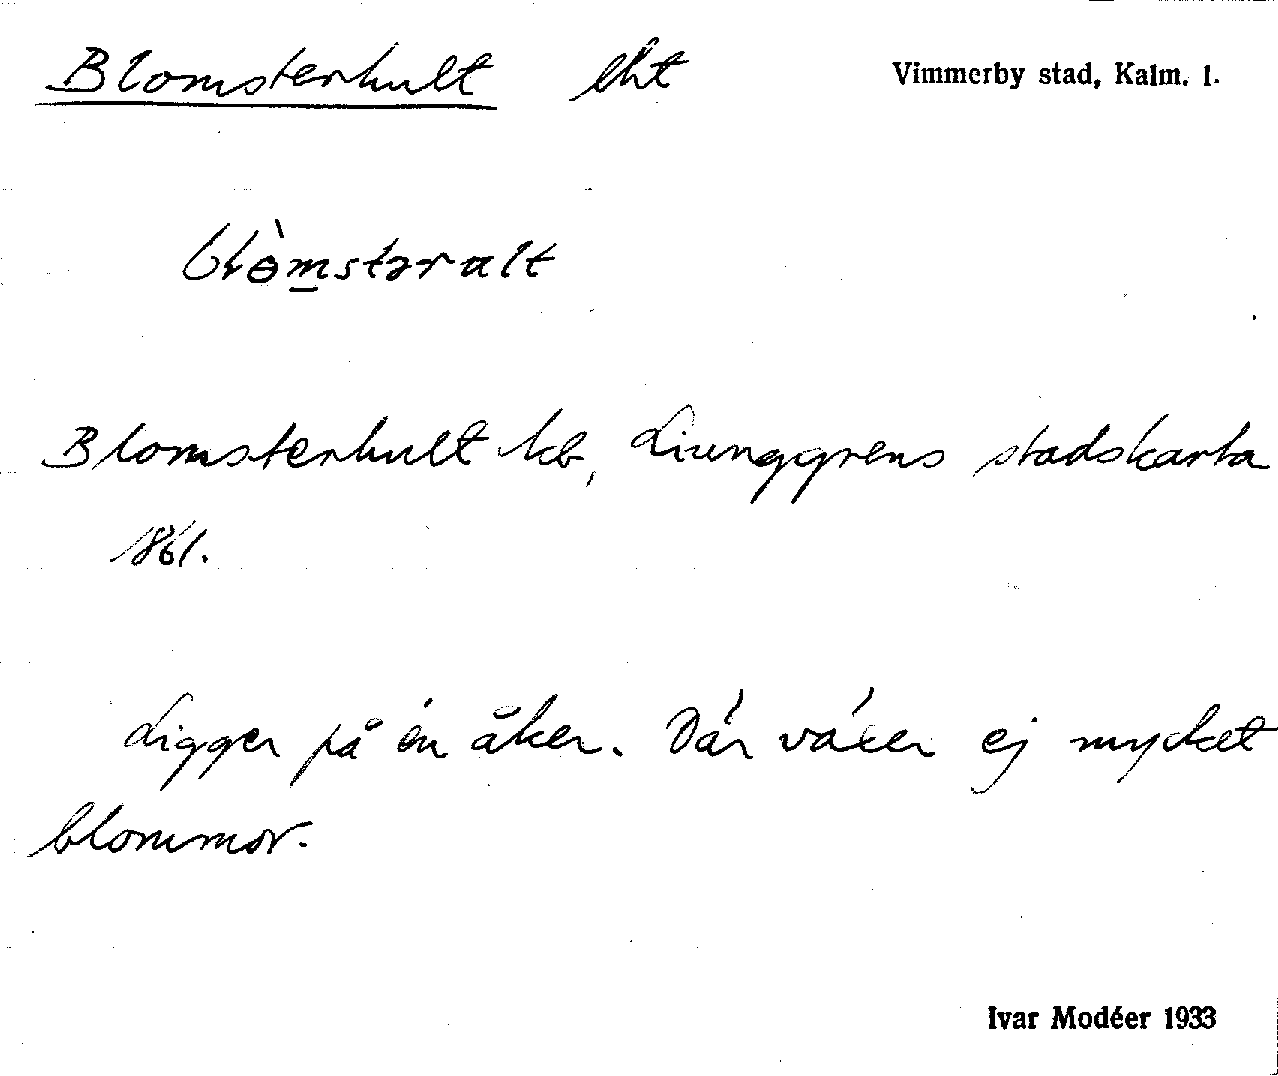 Blomsterhult lht Vimmerby stad, Kalm. l.
blòmstəralt
Blomsterhult lcb, Liunggrens stadskarta
1861.
Ligger på en åker. Där växer ej mycket
blommor.
Ivar Modéer 1933